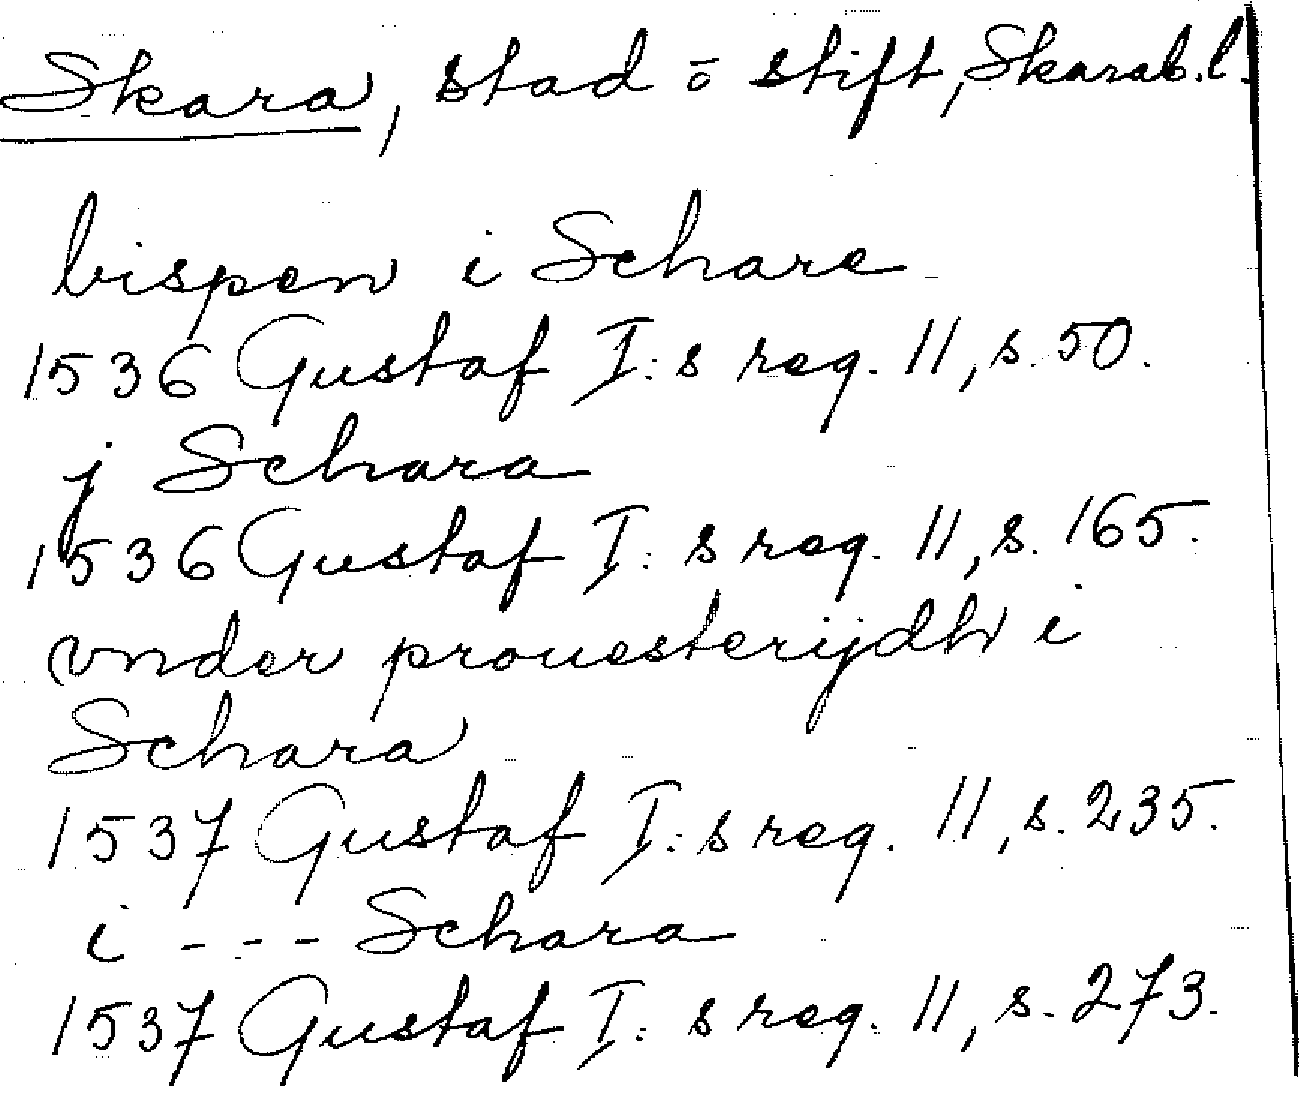 Skara, stad o stift, Skarab.l.
bispen i Schare
1536 Gustaf I:s reg. 11, s. 50.
j Schara
1536 Gustaf I:s reg. 11, s. 165.
vnder prouesterijdh i
Schara
1537 Gustaf I:s reg. 11, s. 235.
i - - - Schara
1537 Gustaf I:s reg. 11, s. 273.